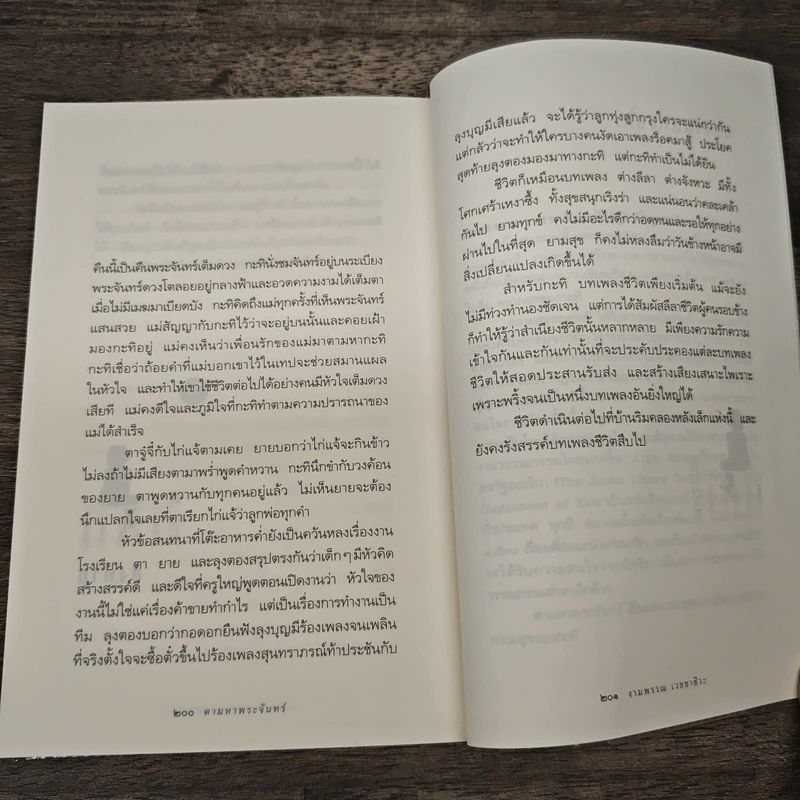 คืนนี้เป็นคืนพระจันทร์เต็มดวง กะทินั่งชมจันทร์อยู่บนระเบียง
พระจันทร์ดวงโตลอยอยู่กลางฟ้าและอวดความงามได้เต็มตา
เมื่อไม่มีเมฆมาเบียดบัง กะทิคิดถึงแม่ทุกครั้งที่เห็นพระจันทร์
แสนสวย แม่สัญญากับกะทิไว้ว่าจะอยู่บนนั้นและคอยเฝ้า
มองกะทิอยู่ แม่คงเห็นว่าเพื่อนรักของแม่มาตามหากะทิ
กะทิเชื่อว่าถ้อยคำที่แม่บอกเขาไว้ในเทปจะช่วยสมานแผล
ในหัวใจ และทำให้เขาใช้ชีวิตต่อไปได้อย่างคนมีหัวใจเต็มดวง
เสียที แม่คงดีใจและภูมิใจที่กะทิทำตามความปรารถนาของ
แม่ได้สำเร็จ
ตาจู๋จี๋กับไก่แจ้ตามเคย ยายบอกว่าไก่แจ้จะกินข้าว
ไม่ลงถ้าไม่มีเสียงตามาพร่ำพูดคำหวาน กะทินึกขำกับวงค้อน
ของยาย ตาพูดหวานกับทุกคนอยู่แล้ว ไม่เห็นยายจะต้อง
นึกแปลกใจเลยที่ตาเรียกไก่แจ้ว่าลูกพ่อทุกคำ
หัวข้อสนทนาที่โต๊ะอาหารค่ำยังเป็นควันหลงเรื่องงาน
โรงเรียน ตา ยาย และลุงตองสรุปตรงกันว่าเด็กๆ มีหัวคิด
สร้างสรรค์ดี และดีใจที่ครูใหญ่พูดตอนเปิดงานว่า หัวใจของ
งานนี้ไม่ใช่แค่เรื่องค้าขายทำกำไร แต่เป็นเรื่องการทำงานเป็น
ทีม ลุงตองบอกว่ากอดอกยืนฟังลุงบุญมีร้องเพลงจนเพลิน
ที่จริงตั้งใจจะซื้อตั๋วขึ้นไปร้องเพลงสุนทราภรณ์ท้าประชันกับ
๒๐๐ ตามหาพระจันทร์
ลุงบุญมีเสียแล้ว จะได้รู้ว่าลูกทุ่งลูกกรุงใครจะแน่กว่ากัน
แต่กลัวว่าจะทำให้ใครบางคนงัดเอาเพลงร็อคมาสู้ ประโยค
สุดท้ายลุงตองมองมาทางกะทิ แต่กะทิทำเป็นไม่ได้ยิน
ชีวิตก็เหมือนบทเพลง ต่างลีลา ต่างจังหวะ มีทั้ง
โศกเศร้าเหงาซึ้ง ทั้งสุขสนุกเริงร่า และแน่นอนว่าคละเคล้า
กันไป ยามทุกข์ คงไม่มีอะไรดีกว่าอดทนและรอให้ทุกอย่าง
ผ่านไปในที่สุด ยามสุข ก็คงไม่หลงลืมว่าวันข้างหน้าอาจมี
สิ่งเปลี่ยนแปลงเกิดขึ้นได้
สำหรับกะทิ บทเพลงชีวิตเพียงเริ่มต้น แม้จะยัง
ไม่มีท่วงทำนองชัดเจน แต่การได้สัมผัสลีลาชีวิตผู้คนรอบข้าง
ก็ทำให้รู้ว่าสำเนียงชีวิตนั้นหลากหลาย มีเพียงความรักความ
เข้าใจกันและกันเท่านั้นที่จะประคับประคองแต่ละบทเพลง
ชีวิตให้สอดประสานรับส่ง และสร้างเสียงเสนาะไพเราะ
เพราะพริ้งจนเป็นหนึ่งบทเพลงอันยิ่งใหญ่ได้
ชีวิตดำเนินต่อไปที่บ้านริมคลองหลังเล็กแห่งนี้ และ
ยังคงรังสรรค์บทเพลงชีวิตสืบไป
๒๐๑ งามพรรณ เวชชาชีวะ